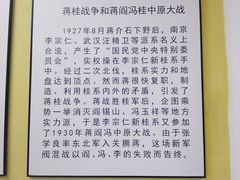 蒋桂战争和蒋阎冯桂中原大战
1927年8月蒋介石下野后，南京
李宗仁、武汉汪精卫等派系名义上
合流，产生了“国民党中央特别委
员会”，实权操在李宗仁新桂系手
中。经过二次北伐，桂系实力和地
盘达到顶点。然而蒋很快复职，制
造、利用桂系内外的矛盾，引发了
蒋桂战争。蒋战胜桂军后，企图乘
势一举消灭阎锡山、冯玉祥等地方
实力派，于是李宗仁新桂系又参加
了1930年蒋阎冯中原大战。由于张
学良率东北军入关拥蒋，这场新军
阀混战以阎、冯、李的失败而告终。